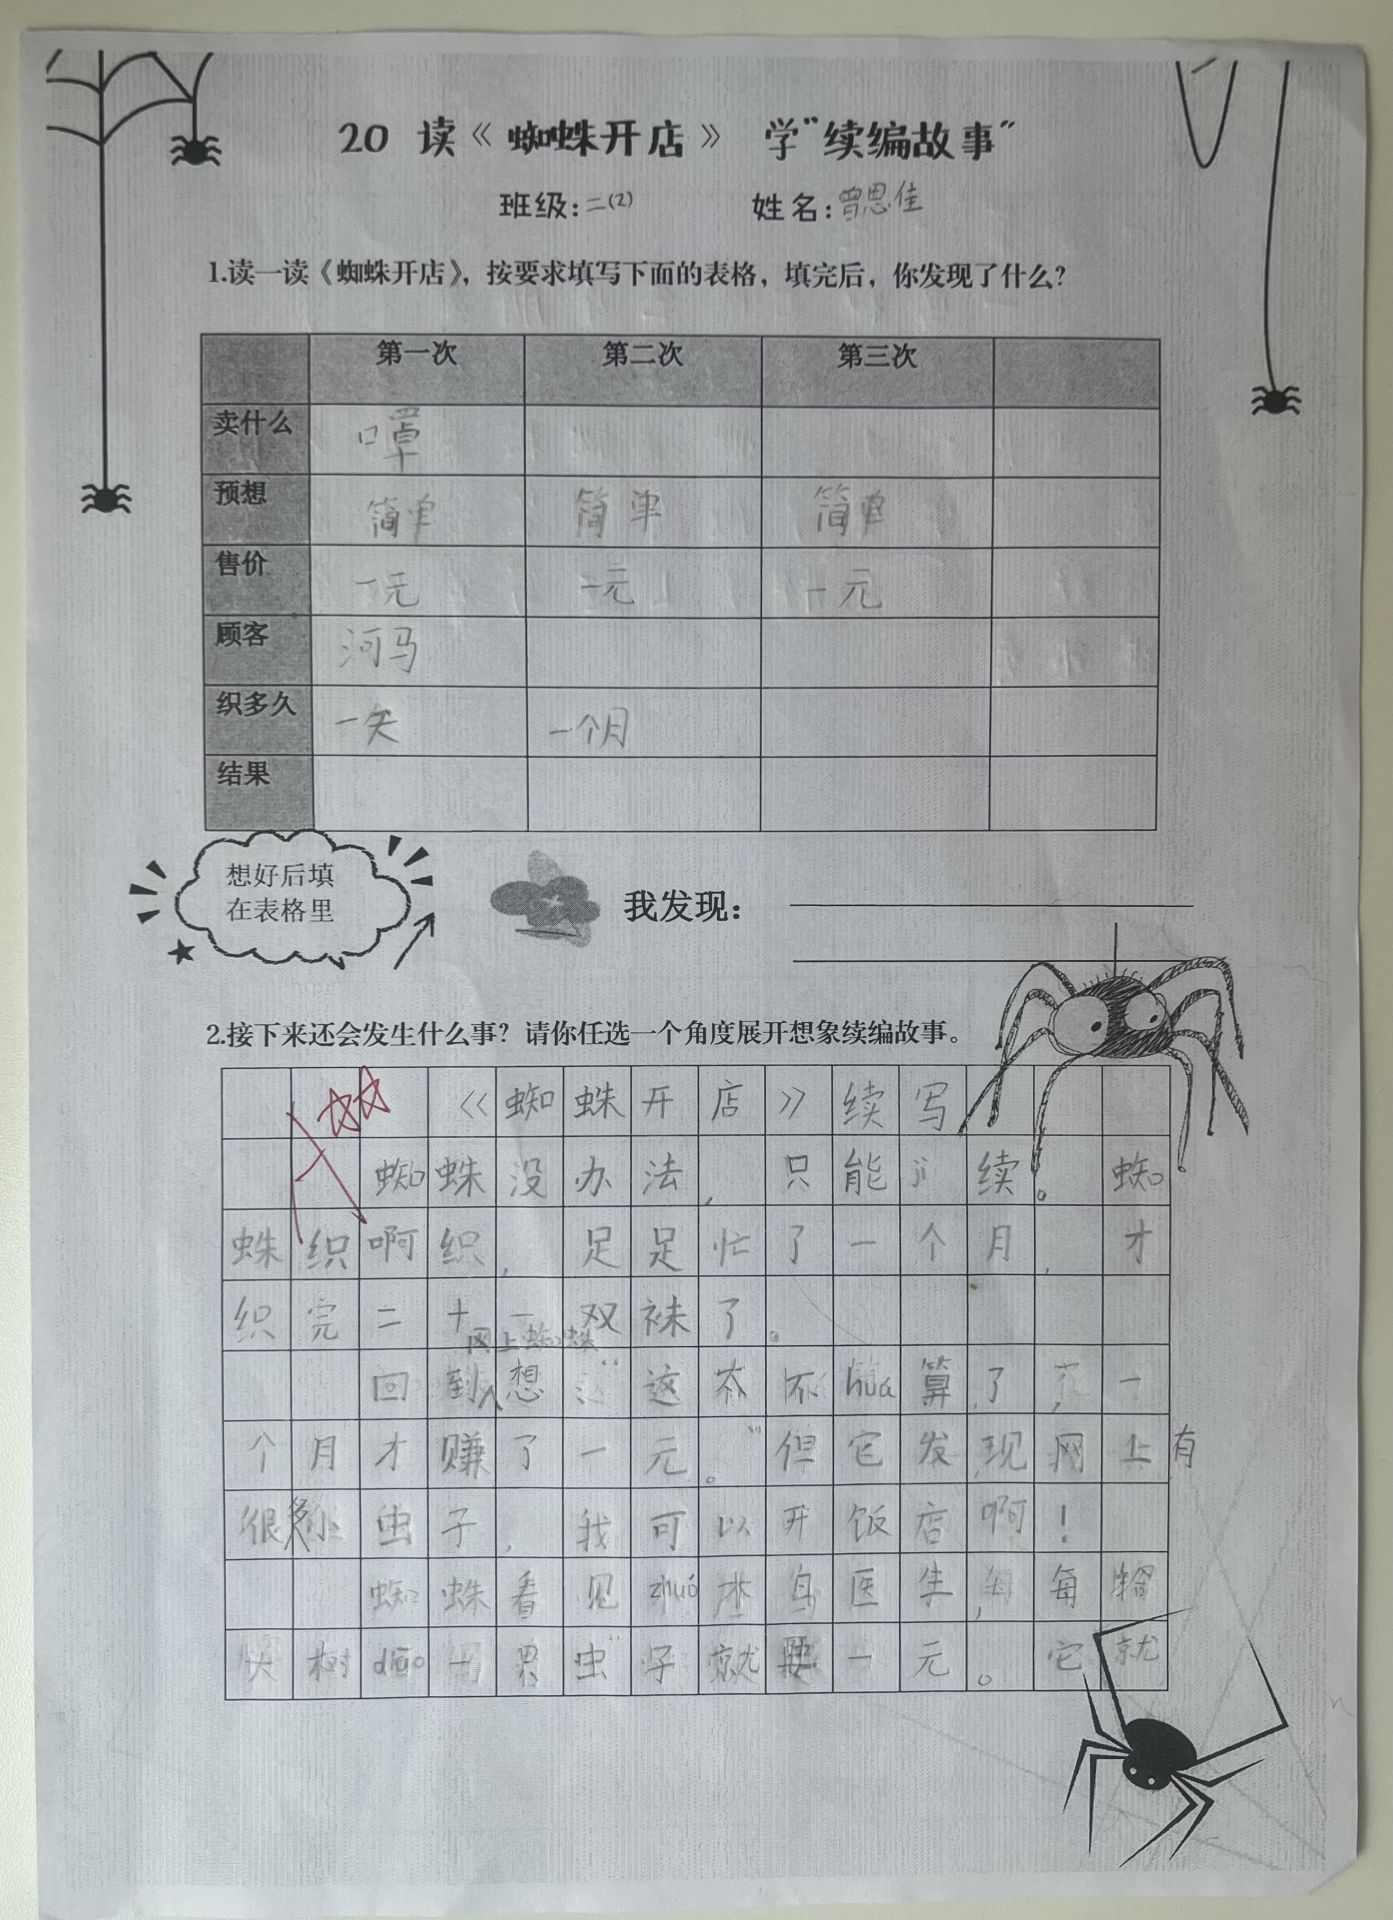 20 读《蜘蛛开店》 学“续编故事”
班级:二(2) 姓名:曾思佳
1.读一读《蜘蛛开店》，按要求填写下面的表格，填完后，你发现了什么？
第一次 第二次 第三次
卖什么 口罩
预想 简单 简单 简单
售价 一元 一元 一元
顾客 河马
织多久 一天 一个月
结果
想好后填
在表格里
我发现：
2.接下来还会发生什么事？请你任选一个角度展开想象续编故事。
《蜘蛛开店》续写
蜘蛛没办法，只能jì续。蜘
蛛织啊织，足足忙了一个月，才
织完二十一双袜了。
网上蜘蛛
回到想“这太不huá算了，一
个月才赚了一元。”但它发现网上有
很多小虫子，我可以开饭店啊！
蜘蛛看见zhuó木鸟医生，每
树diāo虫子就要一元。它就